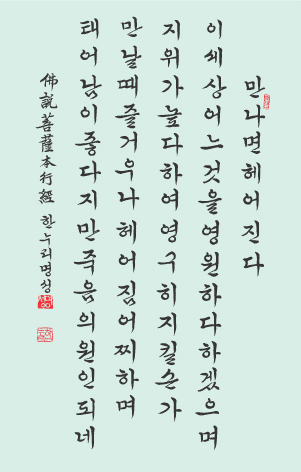 만나면헤어진다
이세상어느것을영원하다하겠으며
지위가높다하여영구히지킬손가
만날때즐거우나헤어짐어찌하며
태어남이좋다지만죽음의원인되네
佛說菩薩本行經 한누리명상